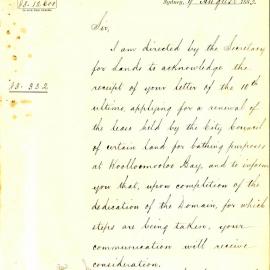 83.12.600
Sydney, 9 August 1883.
Sir,
I am directed by the Secretary
for Lands to acknowledge the
receipt of your letter of the 10th
ultimo, applying for a renewal of
83.332
the lease held by the City Council
of certain land for bathing purposes
at Woolloomooloo Bay, and to inform
you that, upon completion of the
dedication of the Domain, for which
steps are being taken, your
communication will receive
consideration.